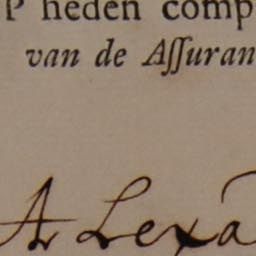 P heden comp
van de Aſſuran
A Lexa